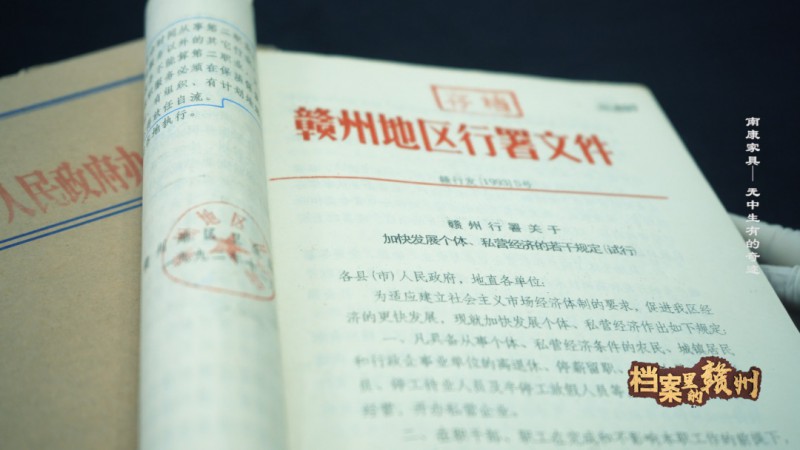 时间从事第二职
以外的其它行
组织、有计划
放任自流。
执行。
人民政府办
赣州地区行署文件
赣行发(1993)5号
赣州行署关于
加快发展个体、私营经济的若干规定(试行)
各县(市)人民政府，地直各单位:
为适应建立社会主义市场经济体制的要求，促进我区经
济的更快发展，现就加快发展个体、私营经济作出如下规定
一、凡具备从事个体、私营经济条件的农民、城镇居民
和行政企事业单位的离退休、停薪留职、
员、停工待业人员及半停工放假人员等
经营、开办私营企业。
二、在职干部、职工在完成和不影响本职工作的前提下，
南康家具——无中生有的奇迹
档案里的赣州